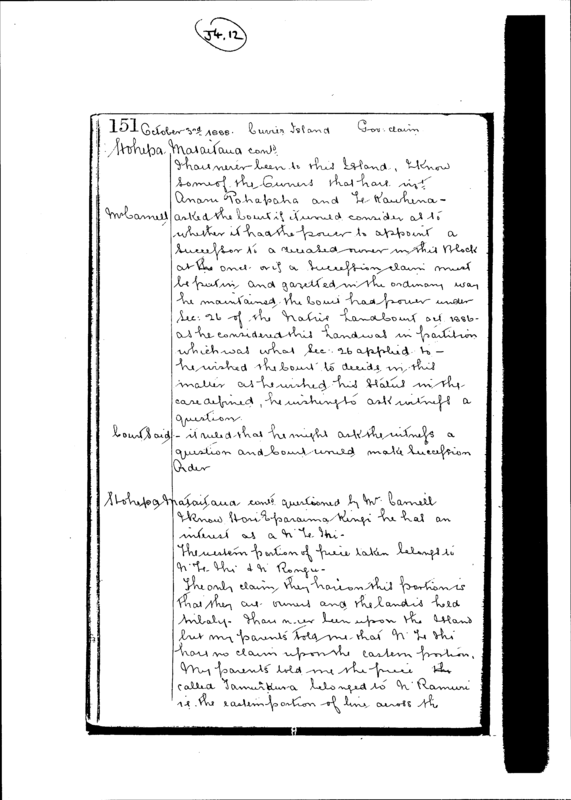 J4.12
151 October 3rd 1888. Cuvier Island Gov. claim
Hohepa Mataitaua contd.
I have never been to this Island, I know
some of the Owners that have intt.
Anaru Pahapaha and Te Kauhena -
Mr Carnell asked the Court if it would consider as to
whether it had the power to appoint a
Successor to a deceased owner in this Block
at the once. or if a Succession claim must
be put in and gazetted in the ordinary way
he maintained the Court had power under
Sec: 26 of the Native Land Court act 1886-
as he considered this land was in partition
which was what Sec: 26 applied to -
he wished the Court to decide in this
matter as he wished his Status in the
case defined, he wishing to ask witness a
question
Court Said - it ruled that he might ask the witness a
question and Court would make Succession
Order
Hohepa Mataitaua contd. questioned by Mr. Carnell
I know Hori Eparaima Kingi he has an
interest as a N' Te Ihi -
The western portion of piece taken belongs to
N' Te Ihi & N' Rongu -
The only claim they have on this portion is
that they are owners and the land is held
tribaly. I have never been upon the Island
but my parents told me that N' Te Ihi
have no claim upon the eastern portion.
My parents told me the piece
called Tamurikura belonged to N' Ramuri
ie. the eastern portion of line across the